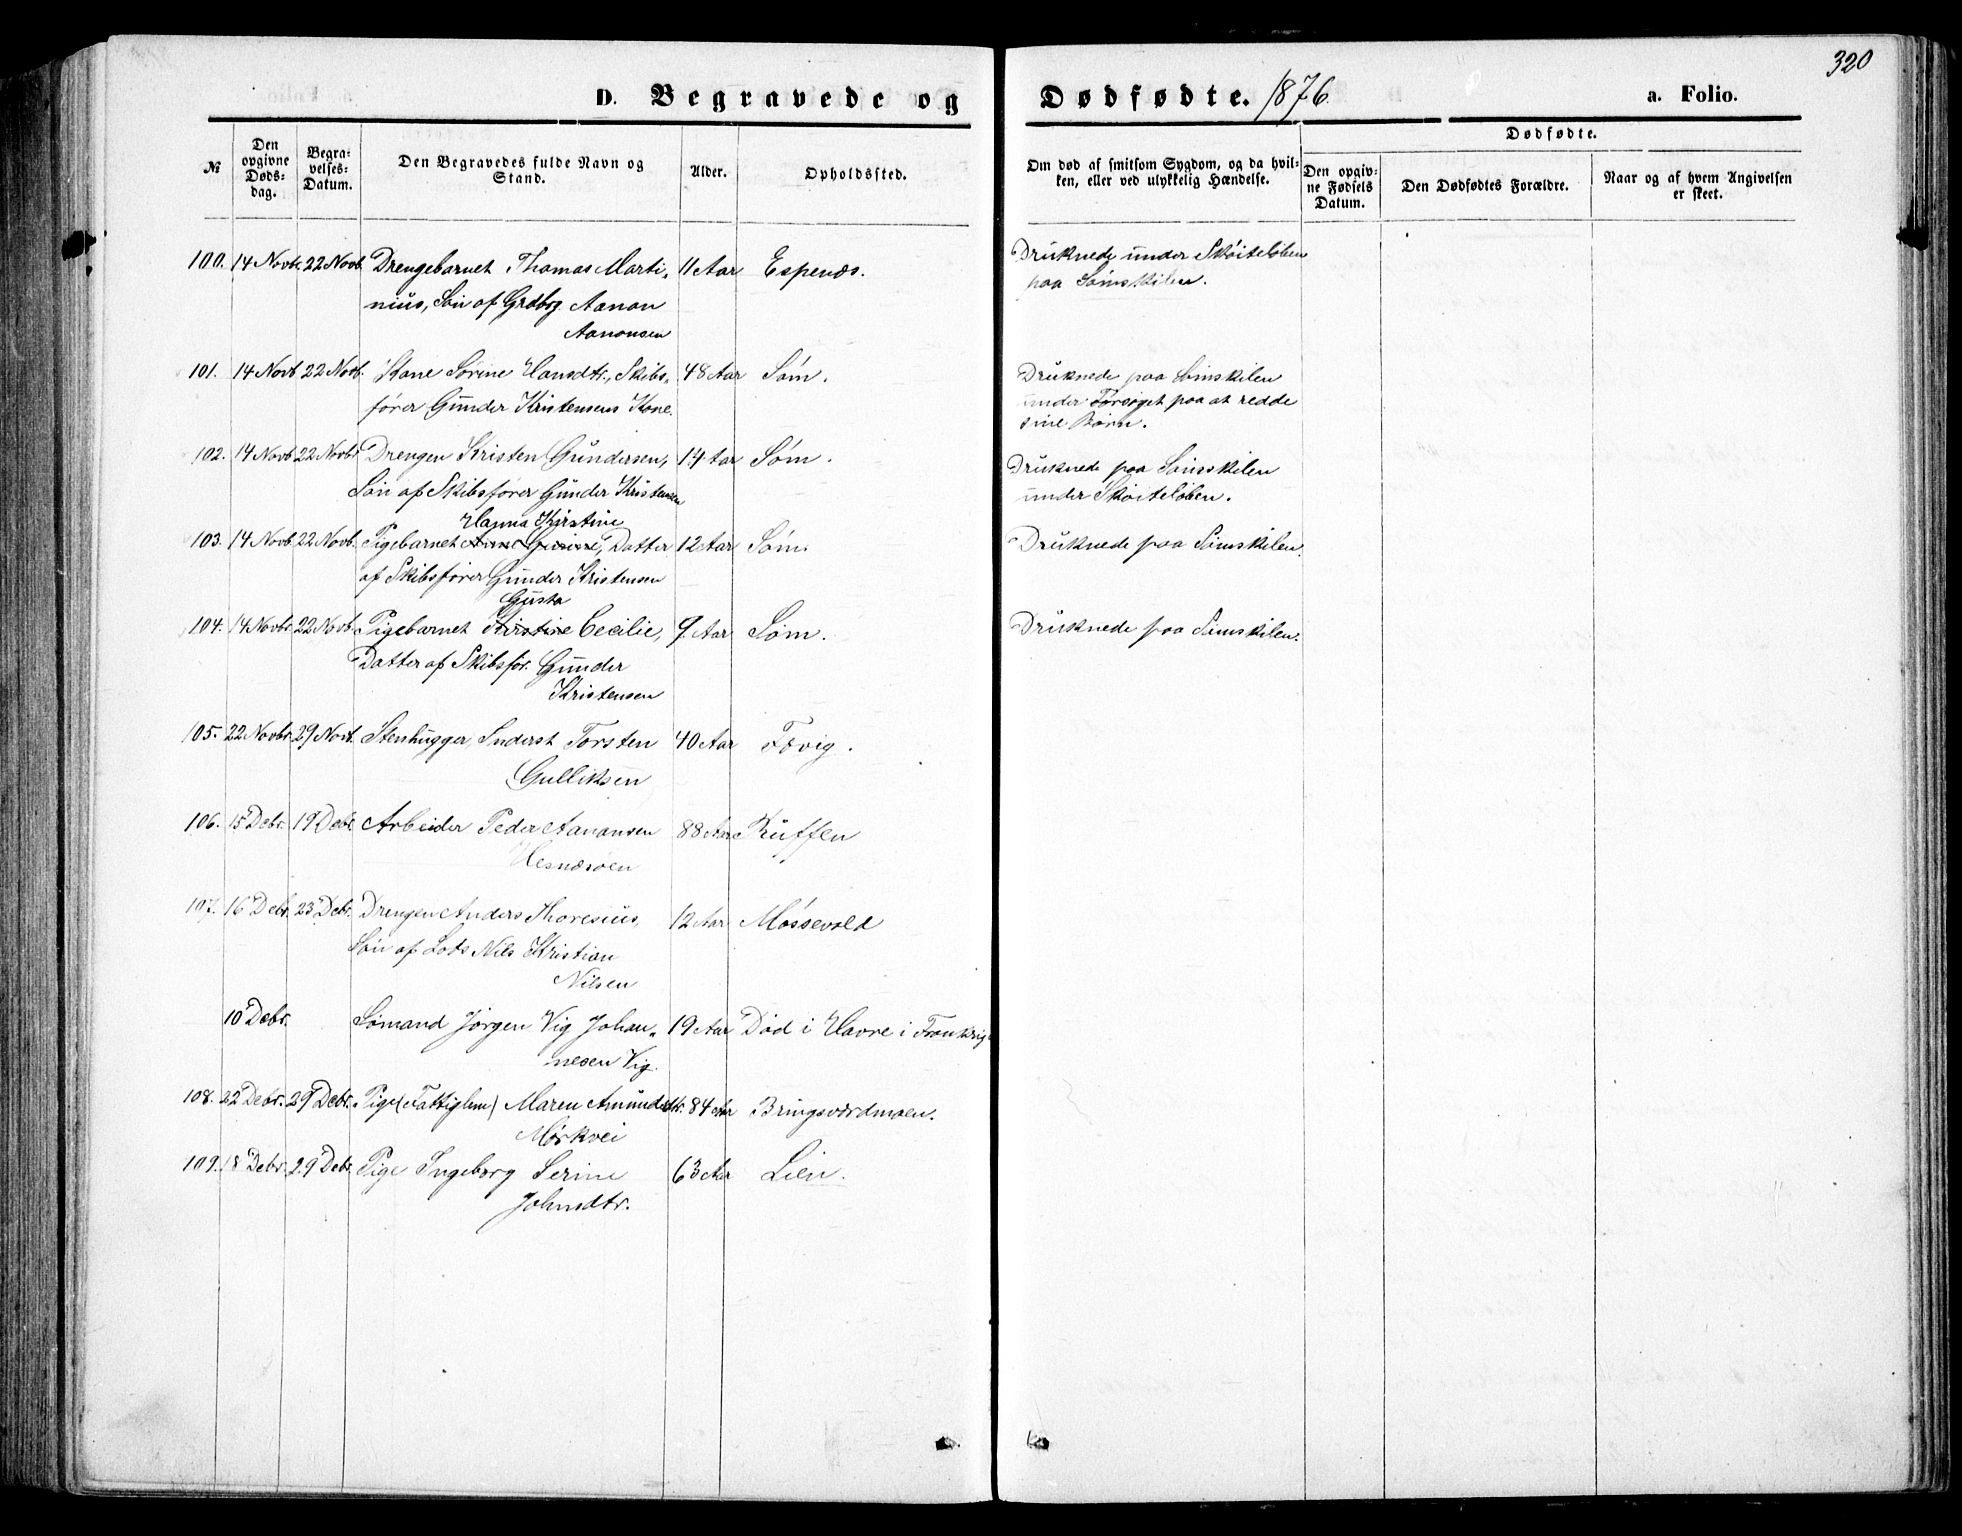 320
D. Begravede og Dødfødte. 1876. a. Folio.
Dødfødte.
№
Den opgivne Døds-dag.
Begra-velses-Datum.
Den Begravedes fulde Navn og Stand.
Alder.
Opholdssted.
Om død af smitsom Sygdom, og da hvil-ken, eller ved ulykkelig Hændelse.
Den opgiv-ne Fødsels Datum.
Den Dødfødtes Forældre.
Naar og af hvem Angivelsen er skeet.
100. 14 Novbr 22 Novb. Drengebarnet Thomas Marti- 11 Aar Espenæs. Druknede under Skøiteløben
nius, Søn af Grdbrg. Aanon paa Sømskilen.
Aanonsen
101. 14 Novb 22 Novb. Kone Sørine Hansdtr., Skibs- 48 Aar Søm. Druknede paa Sømskilen
fører Gunder Kristensens Kone. under Forsøget paa at redde
sine Børn.
102. 14 Novb 22 Novbr Drengen Kristen Gundersen, 14 Aar Søm. Druknede paa Sømskilen
Søn af Skibsfører Gunder Kristensen under Skøiteløben.
Hanna Kirstine
103. 14 Novb 22 Novb. Pigebarnet Anne Gurine, Datter 12 Aar Søm. Druknede paa Sømskilen.
af Skibsfører Gunder Kristensen
Gusta
104. 14 Novbr 22 Novb. Pigebarnet Kirstine Cecilie, 9 Aar Søm. Druknede paa Sømskilen.
Datter af Skibsför. Gunder
Kristensen
105. 22 Novbr. 29 Novb. Stenhugger, Inderst Torsten 40 Aar Fævig.
Gulliksen
106. 15 Debr. 19 Debr. Arbeider Peder Aanonsen 88 Aar Ruffen
Hesnæsøen
107. 16 Debr. 23 Debr. Drengen Anders Thoresius, 12 Aar Møssevold
Søn af Lods Nils Kristian
Nilsen
10 Debr. Sømand Jørgen Vig Johan- 19 Aar Død i Havre i Frankrig
nesen Vig.
108. 22 Debr. 29 Debr. Pige (Fattiglem) Maren Amundsdtr. 84 Aar Bringsværdmoen.
Mørkvei
109. 18 Debr. 29 Debr. Pige Ingeborg Serine 63 Aar Lien.
Johnsdtr.